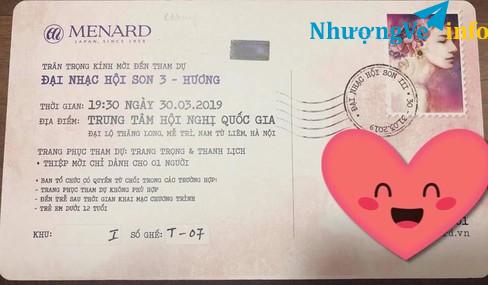 MENARD
JAPAN, SINCE 1959
NhượngVé.info
TRÂN TRỌNG KÍNH MỜI ĐẾN THAM DỰ
ĐẠI NHẠC HỘI SON 3 - HƯƠNG
THỜI GIAN: 19:30 NGÀY 30.03.2019
ĐỊA ĐIỂM: TRUNG TÂM HỘI NGHỊ QUỐC GIA
ĐẠI LỘ THĂNG LONG, MỄ TRÌ, NAM TỪ LIÊM, HÀ NỘI
TRANG PHỤC THAM DỰ: TRANG TRỌNG & THANH LỊCH
• THIỆP MỜI CHỈ DÀNH CHO 01 NGƯỜI
• BAN TỔ CHỨC CÓ QUYỀN TỪ CHỐI TRONG CÁC TRƯỜNG HỢP:
- TRANG PHỤC THAM DỰ KHÔNG PHÙ HỢP
- ĐẾN TRỄ SAU THỜI GIAN KHAI MẠC CHƯƠNG TRÌNH
- TRẺ EM DƯỚI 12 TUỔI
KHU: I SỐ GHẾ: T-07
ĐẠI NHẠC HỘI SON III • 30 - 31.03.2019
01
rd.vn